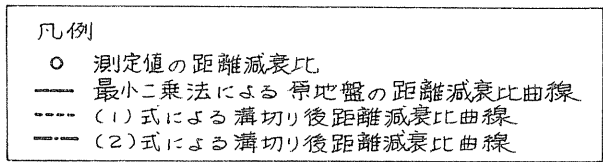 凡例
測定値の距離減衰比
最小二乗法による原地盤の距離減衰比曲線
(1)式による溝切り後距離減衰比曲線
(2)式による溝切り後距離減衰比曲線